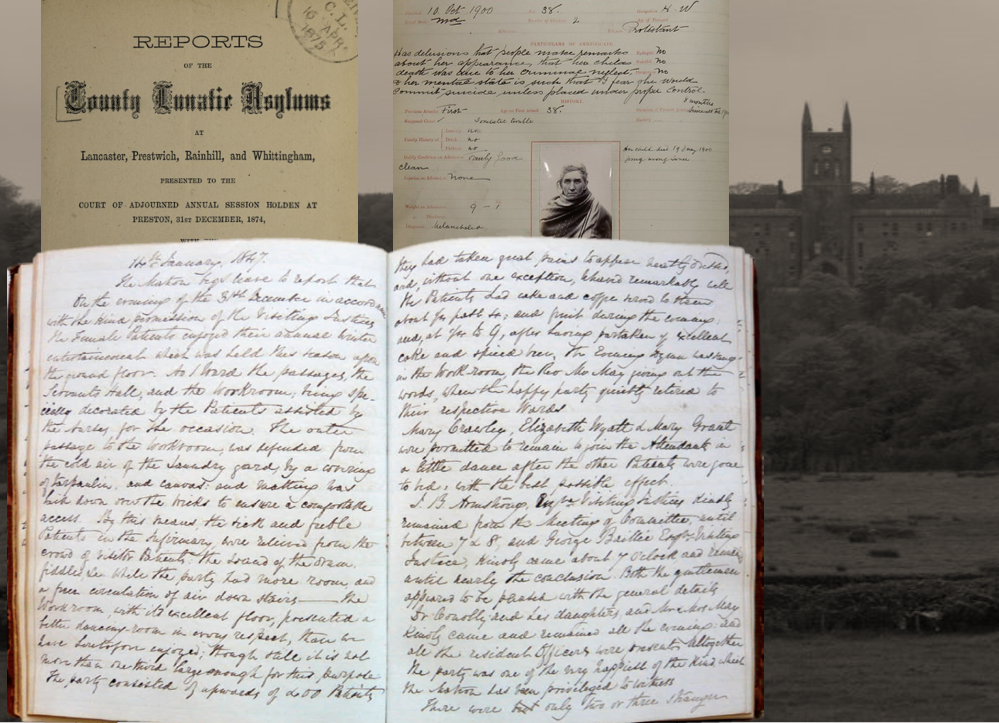 C.L.
16 APR
1875
REPORTS
OF THE
County Lunatic Asylums
AT
Lancaster, Prestwich, Rainhill, and Whittingham,
PRESENTED TO THE
COURT OF ADJOURNED ANNUAL SESSION HOLDEN AT
PRESTON, 31ST DECEMBER, 1874,
10 Oct 1900 38. H.W
2 Protestant
PARTICULARS OF CERTIFICATE
Has delusions that people make remarks no
about her appearance, that her childs no
death was due to her criminal neglect. no
& her mental state is such that I fear she would
commit suicide unless placed under proper control.
HISTORY
First 38. 8 months
Domestic trouble
no
no
no
Fairly Good
clean
None
9 - 8
Melancholia
Her child died 19 Jany 1900
14th January, 1847.
The Matron begs leave to report that
On the evening of the 31st December in accordance
with the kind permission of the Visiting Justices
the Female Patients enjoyed their annual Winter
entertainment which was held this season upon
the ground floor. No 1 Ward the passages, the
Servants Hall, and the Workroom, being spe-
cially decorated by the Patients assisted by
the Nurses for the occasion. The outer
passage to the Workroom, was defended from
the cold air of the laundry yard, by a covering
of tarpaulin, and canvas, and matting was
laid down over the bricks to ensure a comfortable
access. By this means, the sick and feeble
Patients in the Infirmary were relieved from the
crowd of visitor Patients, the sound of the drum,
fiddles, &c while the party had more room and
a free circulation of air down stairs — the
Workroom, with its excellent floor, presented a
better dancing-room in every respect, than we
have heretofore enjoyed; though still it is not
more than one third large enough for this purpose
The party consisted of upwards of 200 Patients
they had taken great pains to appear neatly dressed,
and, without one exception, behaved remarkably well
The Patients had cake and coffee served to them
about 1/2 past 4; and fruit during the evening;
and, at 1/4 to 9, after having partaken of excellent
cake and spiced beer, the Evening Hymn was sung
in the Work-room the Revd Mr May giving out the
words, when the happy party quietly retired to
their respective Wards.
Mary Crawley, Elizabeth Wyatt & Mary Grant
were permitted to remain to join the Attendants in
a little dance after the other Patients were gone
to bed, with the best possible effect.
J. B. Armstrong, Esqre Visiting Justice kindly
remained from the Meeting of Committee, until
between 7 & 8, and George Baillie Esqre Visiting
Justice, kindly came about 7 o'clock and remained
until nearly the conclusion. Both the gentlemen
appeared to be pleased with the general details
Dr Conolly and his daughters, and Mr & Mrs May
kindly came and remained all the evening: and
all the resident Officers were present. Altogether
the party was one of the very happiest of the kind which
the Matron has been privileged to witness
There were but only two or three strangers